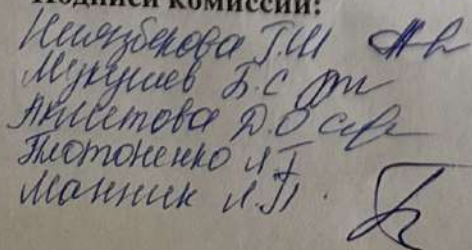 Подписи комиссии:
Ниязбекова Г.Ш
Мукушев Б.С
Ахметова Д.О
Платоненко Л Г
Манник Л.П.